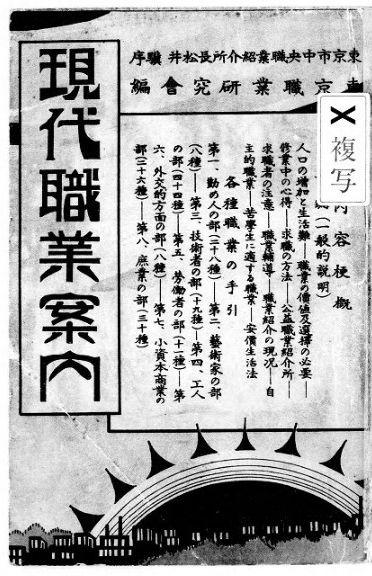 東京市中央職業紹介所長松井驥序
東京職業研究會編
現代職業案内
複写
内容梗概
(一般的説明)
人口の増加と生活難―職業の価値及選擇の必要―
修業中の心得―求職の方法―公益職業紹介所―
求職者の注意―職業輔導―職業紹介の現況―自
主的職業―苦學生に適する職業―安價生活法
各種職業の手引
第一、勤め人の部(三十八種)―第二、藝術家の部
(八種)―第三、技術者の部(十九種)第四、工人
の部(四十四種)―第五、労働者の部(十一種)―第
六、外交的方面の部(八種)―第七、小資本商業の
部(三十六種)―第八、庶業の部(三十種)